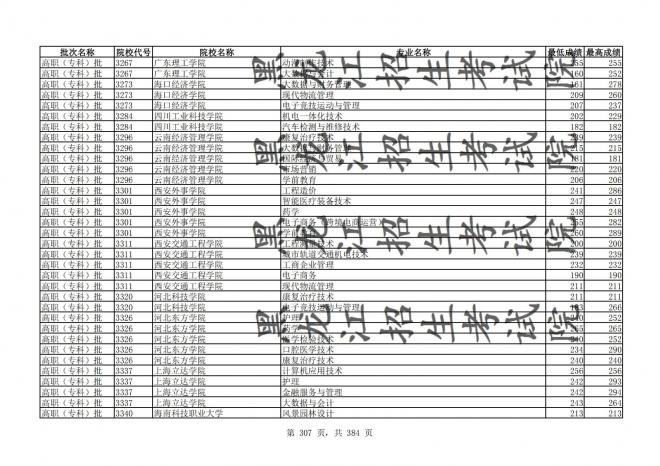 批次名称 院校代号 院校名称 专业名称 最低成绩 最高成绩
高职（专科）批 3267 广东理工学院 动漫制作技术 255
高职（专科）批 3267 广东理工学院 大数据与会计 160 252
高职（专科）批 3273 海口经济学院 大数据与财务管理 161 278
高职（专科）批 3273 海口经济学院 现代物流管理 209 260
高职（专科）批 3273 海口经济学院 电子竞技运动与管理 207 237
高职（专科）批 3284 四川工业科技学院 机电一体化技术 202 229
高职（专科）批 3284 四川工业科技学院 汽车检测与维修技术 182 182
高职（专科）批 3296 云南经济管理学院 康复治疗技术 239
高职（专科）批 3296 云南经济管理学院 大数据与财务管理 215 215
高职（专科）批 3296 云南经济管理学院 国际经济与贸易 181 181
高职（专科）批 3296 云南经济管理学院 市场营销 220 220
高职（专科）批 3296 云南经济管理学院 学前教育 206 206
高职（专科）批 3301 西安外事学院 工程造价 241 286
高职（专科）批 3301 西安外事学院 智能医疗装备技术 247 247
高职（专科）批 3301 西安外事学院 药学 248 248
高职（专科）批 3301 西安外事学院 电子商务（跨境电商运营） 255 282
高职（专科）批 3301 西安外事学院 学前教育 260 289
高职（专科）批 3311 西安交通工程学院 工程测量技术 200 200
高职（专科）批 3311 西安交通工程学院 城市轨道交通机电技术 239 239
高职（专科）批 3311 西安交通工程学院 工商企业管理 232 232
高职（专科）批 3311 西安交通工程学院 电子商务 190 190
高职（专科）批 3311 西安交通工程学院 现代物流管理 211 211
高职（专科）批 3320 河北科技学院 康复治疗技术 211 211
高职（专科）批 3320 河北科技学院 电子竞技运动与管理 266
高职（专科）批 3326 河北东方学院 护理 252
高职（专科）批 3326 河北东方学院 药学 265
高职（专科）批 3326 河北东方学院 医学检验技术 240 252
高职（专科）批 3326 河北东方学院 口腔医学技术 234 290
高职（专科）批 3326 河北东方学院 康复治疗技术 240 240
高职（专科）批 3337 上海立达学院 计算机应用技术 256 256
高职（专科）批 3337 上海立达学院 护理 242 293
高职（专科）批 3337 上海立达学院 金融服务与管理 242 294
高职（专科）批 3337 上海立达学院 大数据与会计 243 264
高职（专科）批 3340 海南科技职业大学 风景园林设计 213 213
黑龙江招生考试院
黑龙江招生考试院
黑龙江招生考试院
第 307 页，共 384 页